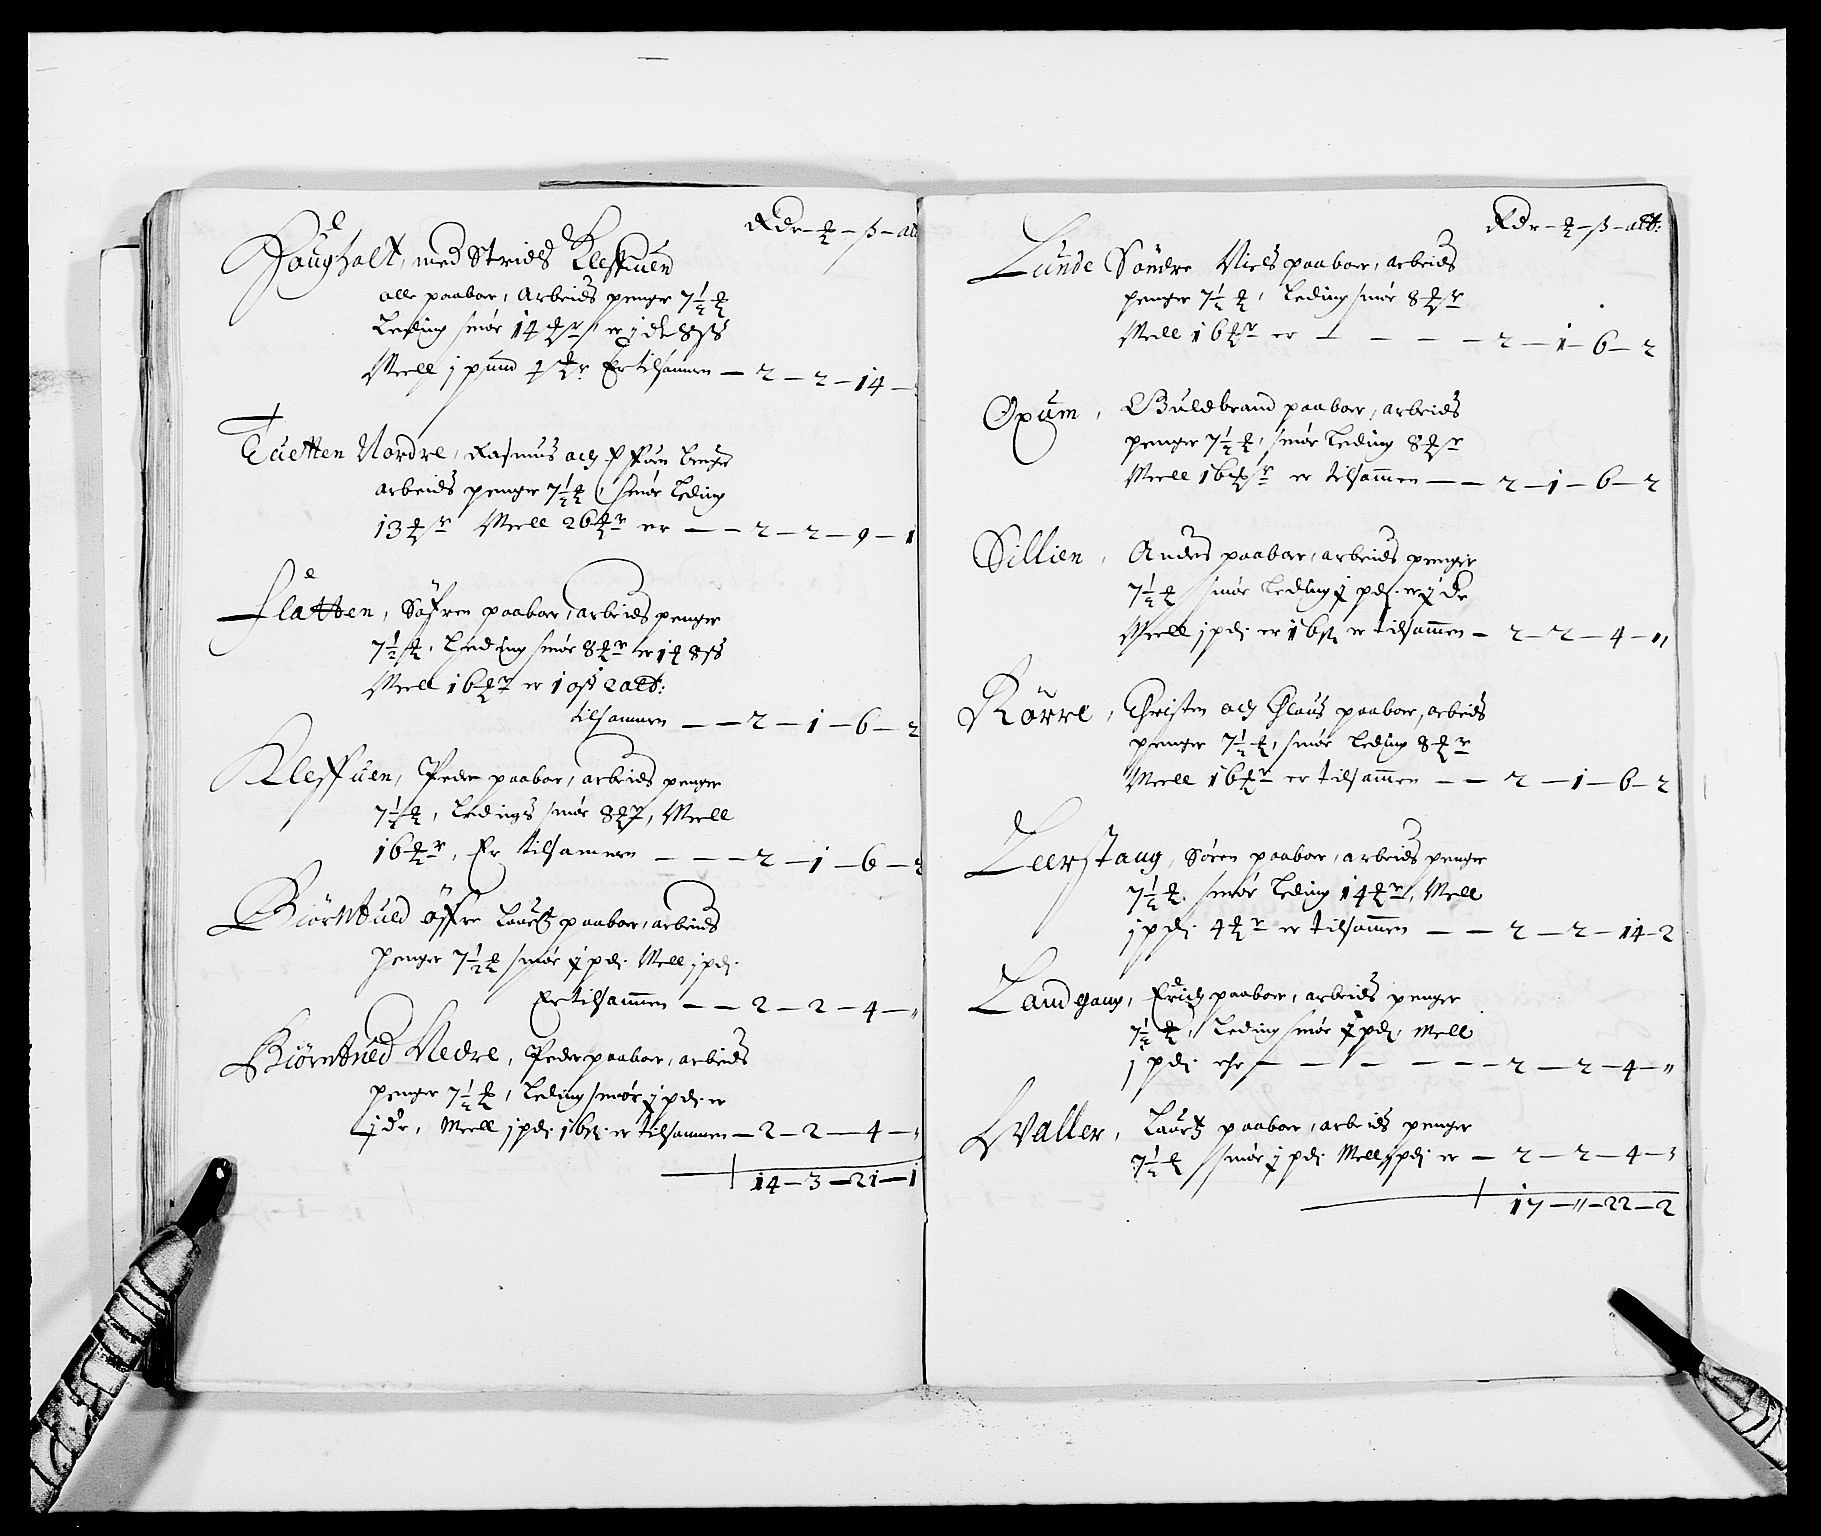 Rdr – ₰ – ß – alb
Hougholt, med Strids Kleffuen
olle paaboer, Arbeids penger 7½ ₰
Leding smör 14 ₰r er j dr 8 ß
Meell j pund 4 ₰r Er tilsamen – 2 – 2 – 14 –
Tuetten Nordre, Rasmus och
arbeids penger 7½ ₰, smör Leding
13 ₰r Meell 26 ₰r er – – 2 – 2 – 9 – 1
Slåtten, Söffren paaboer, arbeids penger
7½ ₰, Leding smör 8 ₰r er 1 ₰ 8 ß
Meell 16 ₰r er 1 ₰ 2 alb:
tilsamen – – 2 – 1 – 6 – 2
Kleffuen, Peder paaboer, arbeids penger
7½ ₰, Ledings smör 8 ₰r, Meell
16 ₰r, Er tilsamen – – – 2 – 1 – 6 – 2
Biörntued öffre Lauritz paaboer, arbeids
penger 7½ ₰ smör j pd: Mell j pd:
Er tilsammen – – 2 – 2 – 4 – „
Biörntued Nedre, Peder paaboer, arbeids
penger 7½ ₰, Leding smör j pd: er
j dr, Meell j pd: 16 ß: er tilsammen – 2 – 2 – 4 – „
14 – 3 – 21 – 1
Rdr – ₰ – ß – alb:
Lunde Söndre Niels paaboer, arbeids
penger 7½ ₰, Leding smör 8 ₰r
Mell 16 ₰r er – – – – 2 – 1 – 6 – 2
Oxum, Guldbrand paaboer, arbeids
penger 7½ ₰, smör Leding 8 ₰r
Meell 16 ₰r er tilsammen – – 2 – 1 – 6 – 2
Sillien, Anders paaboer, arbeids penger
7½ ₰ smör Leding j pd: er j dr
Meell j pd: er 16 ß er tilsammen – 2 – 2 – 4 – „
Rörre, Christen och Claus paaboer, arbeids
penger 7½ ₰, smör Leding 8 ₰r
Meell 16 ₰r er tilsammen – – 2 – 1 – 6 – 2
Leerstang, Sören paaboer, arbeids penger
7½ ₰. smör Leding 14 ₰r, Mell
j pd: 4 ₰r er tilsammen – – 2 – 2 – 14 – 2
Landgang, Erich paaboer, arbeids penger
7½ ₰, Leding smör j pd: Mell
j pd: ehr – – – – – – 2 – 2 – 4 – „
Waller, Lauritz paaboer, arbeids penger
7½ ₰ smör j pd: Mell j pd: er – 2 – 2 – 4 – „
17 – „ – 22 – 2